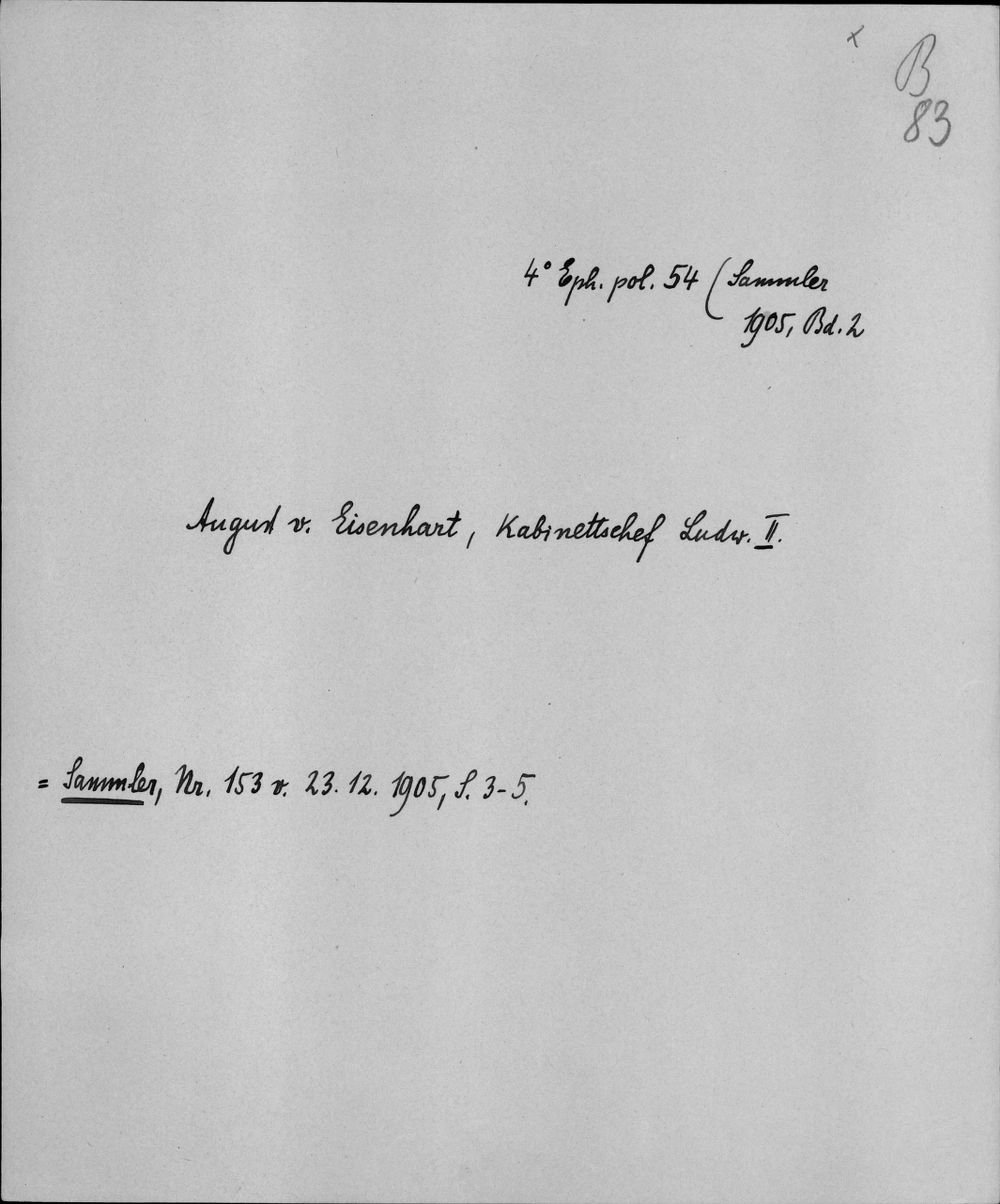 x
B
83
4° Eph. pol. 54 (Sammler
1905, Bd. 2
August v. Eisenhart, Kabinettschef Ludw. II.
= Sammler, Nr. 153 v. 23. 12. 1905, S. 3-5.